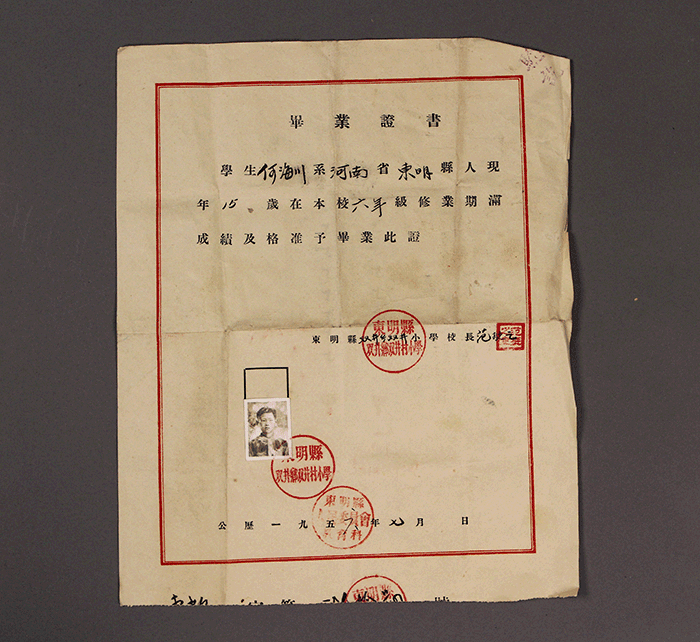 縣
畢業證書
學生何海川系河南省東明縣人現
年15歲在本校六年級修業期滿
成績及格准予畢業此證
東明縣
双井鄉双井村小學
東明縣双井鄉双井小學校長范
東明縣
双井鄉双井村小學
東明縣
人民委員會
教育科
公歷一九五 年七月 日
第 號